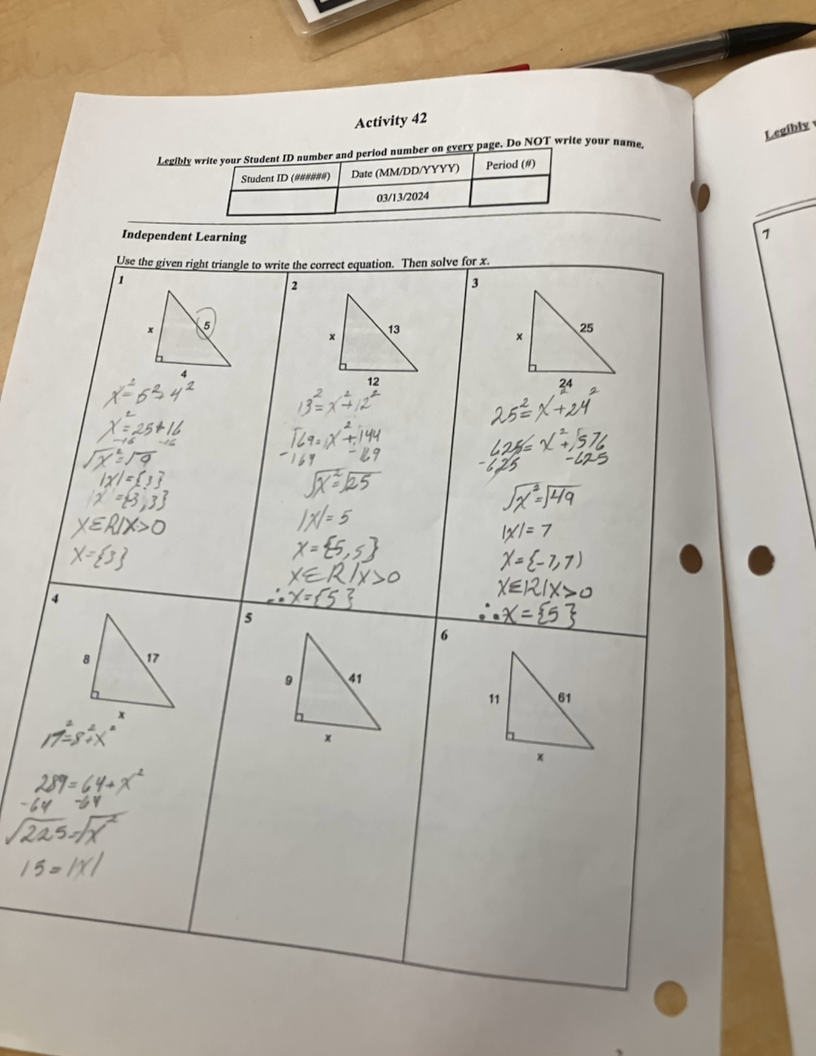 Activity 42
Legibly write your Student ID number and period number on every page. Do NOT write your name.
Student ID (######) Date (MM/DD/YYYY) Period (#)
03/13/2024
Independent Learning
Use the given right triangle to write the correct equation. Then solve for x.
1
x 5
4
x²=5²+4²
x²=25+16
-16 -16
√x²=√9
|x|={3}
x={3,3}
X∈R|X>0
X={3}
2
x 13
12
13²=x²+12²
169=x²+144
-169 -169
√x²=√25
|x|=5
x={5,5}
X∈R|X>0
∴x={5}
3
x 25
24
25²=x²+24²
625=x²+576
-625 -625
√x²=√49
|x|=7
x={-7,7)
X∈R|X>0
∴x={5}
4
8 17
x
17²=8²+x²
289=64+x²
-64 -64
√225=√x²
15=|x|
5
9 41
x
6
11 61
x
Legibly
7